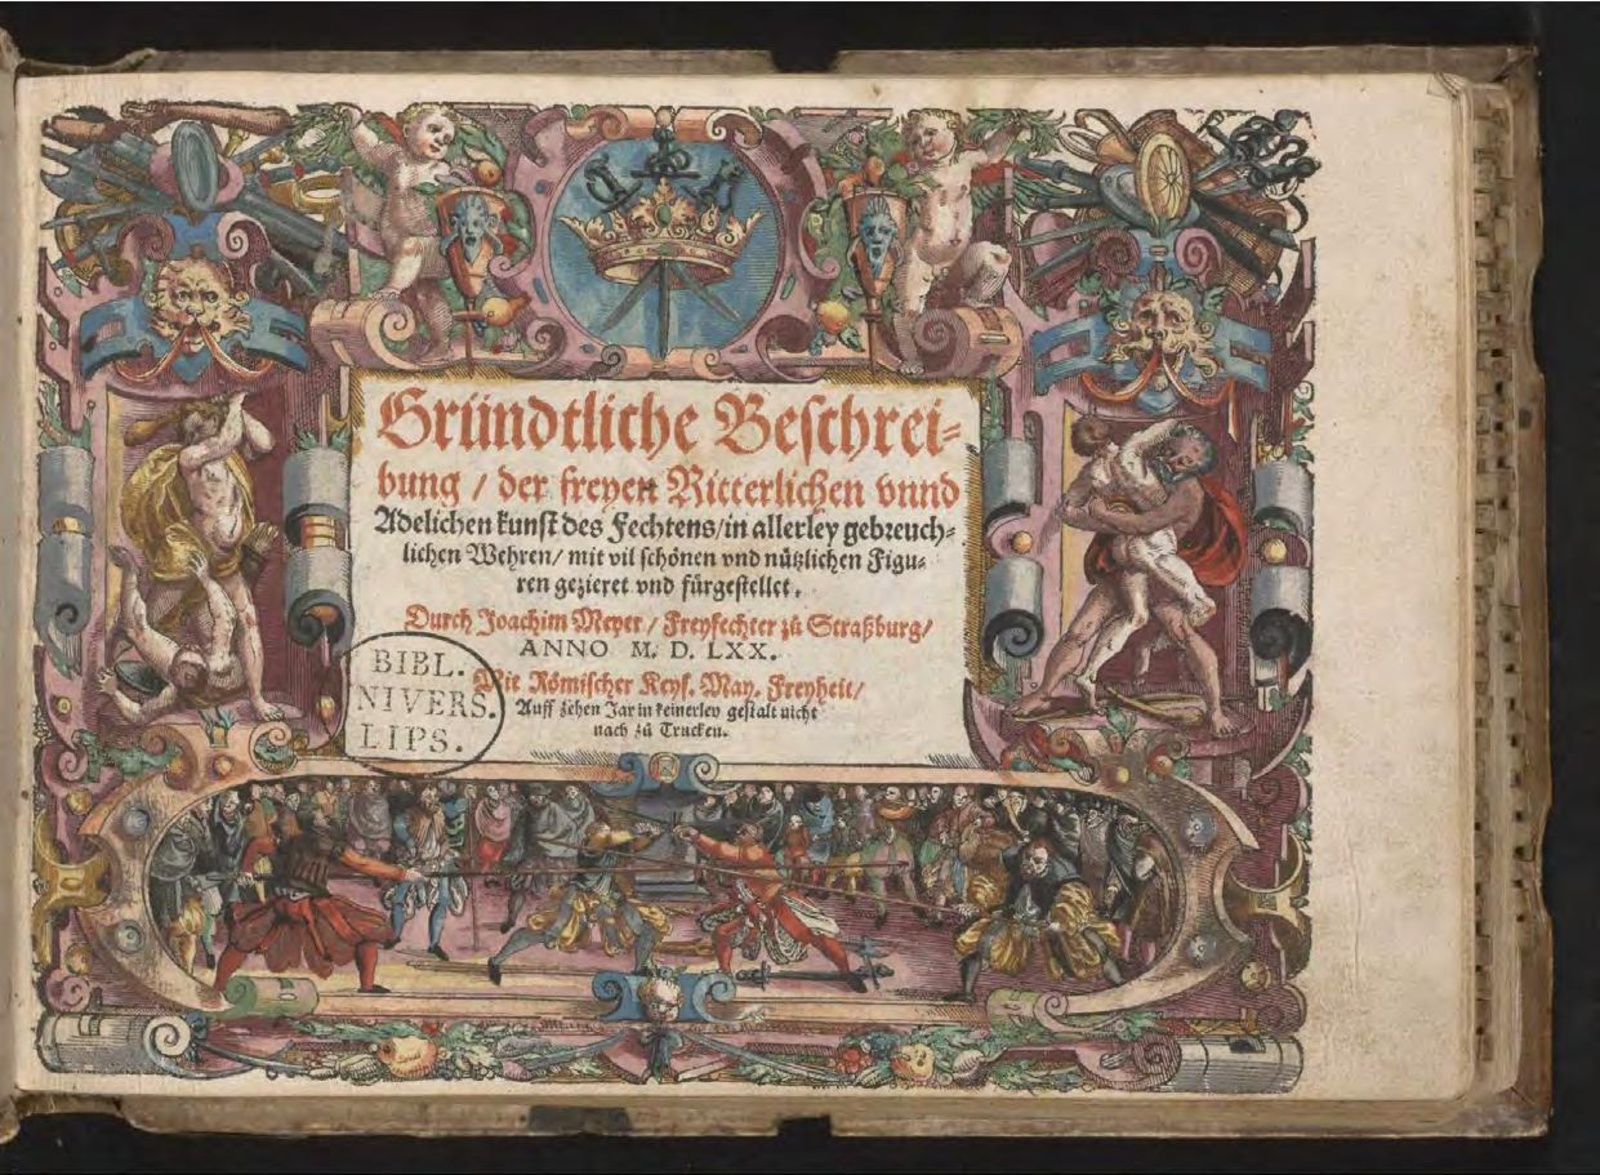 Gründtliche Beschrei⸗
bung / der freyen Ritterlichen vnnd
Adelichen kunst des Fechtens/in allerley gebreuch⸗
lichen Wehren/ mit vil schönen vnd nützlichen Figu⸗
ren gezieret vnd fürgestellet.
Durch Joachim Meyer / Freyfechter zů Straßburg/
ANNO M. D. LXX.
Mit Römischer Keys. May. Freyheit/
Auff zehen Jar in keinerley gestalt nicht
nach zů Trucken.
BIBL.
NIVERS.
LIPS.